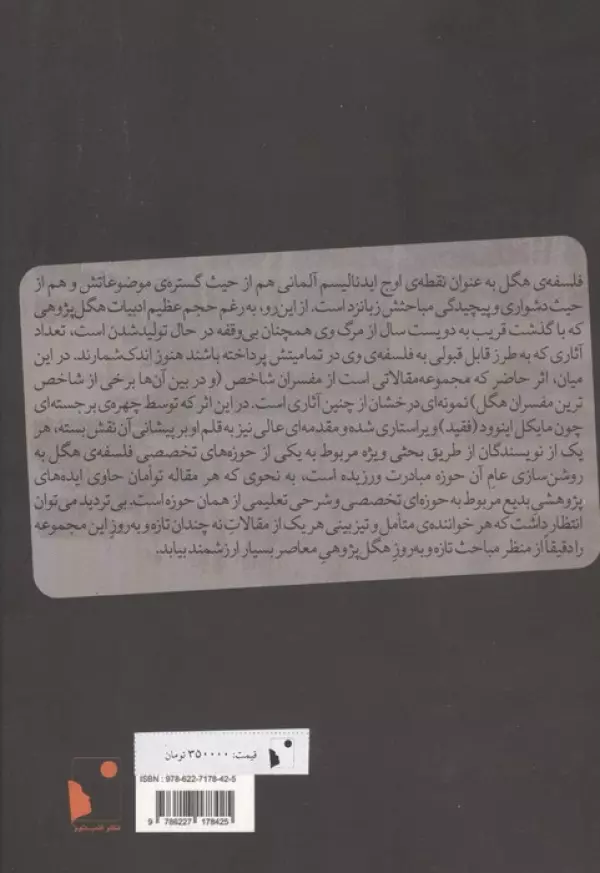 فلسفه‌ی هگل به عنوان نقطه‌ی اوج ایدئالیسم آلمانی هم از حیث گستره‌ی موضوعاتش و هم از
حیث دشواری و پیچیدگی مباحثش زبانزد است. از این‌رو، به‌رغم حجم عظیم ادبیات هگل‌پژوهی
که با گذشت قریب به دویست سال از مرگ وی همچنان بی‌وقفه در حال تولیدشدن است، تعداد
آثاری که به طرز قابل قبولی به فلسفه‌ی وی در تمامیتش پرداخته باشند هنوز اندک‌شمارند. در این
میان، اثر حاضر که مجموعه‌مقالاتی است از مفسران شاخص (و در بین آن‌ها برخی از شاخص
ترین مفسران هگل) نمونه‌ای درخشان از چنین آثاری است. در این اثر که توسط چهره‌ی برجسته‌ای
چون مایکل اینوود (فقید) ویراستاری شده و مقدمه‌ای عالی نیز به قلم او بر پیشانی آن نقش بسته، هر
یک از نویسندگان از طریق بحثی ویژه مربوط به یکی از حوزه‌های تخصصی فلسفه‌ی هگل به
روشن‌سازی عام آن حوزه مبادرت ورزیده است، به نحوی که هر مقاله توأمان حاوی ایده‌های
پژوهشی بدیع مربوط به حوزه‌ای تخصصی و شرحی تعلیمی از همان حوزه است. بی‌تردید می‌توان
انتظار داشت که هر خواننده‌ی متأمل و تیزبینی هر یک از مقالاتِ نه چندان تازه و به‌روزِ این مجموعه
را دقیقاً از منظر مباحث تازه و به‌روزِ هگل‌پژوهیِ معاصر بسیار ارزشمند بیابد.
قیمت: ۳۵۰۰۰۰ تومان
ISBN : 978-622-7178-42-5
9 786227 178425